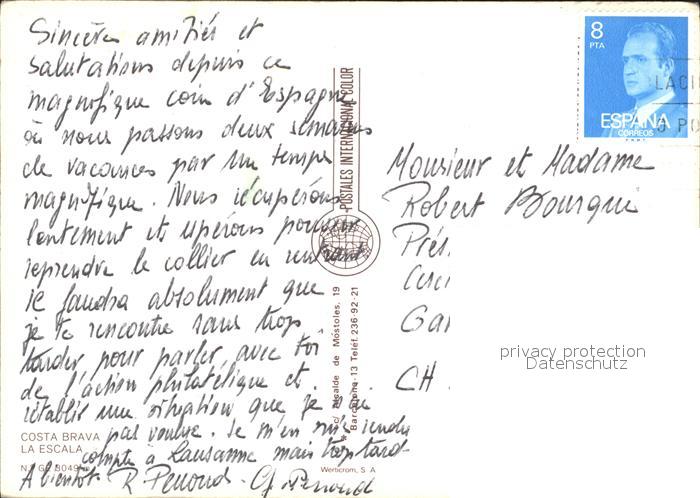 Sincères amitiés et
salutations depuis ce
magnifique coin d'Espagne
où nous passons deux semaines
de vacances par un temps
magnifique. Nous récupérons
lentement et espérons pouvoir
reprendre le collier en rentrant
Il faudra absolument que
je te rencontre sans trop
tarder pour parler avec toi
de l'action philatélique et
rétablir une situation que je n'ai
pas voulue. Je m'en suis rendu
compte à Lausanne mais trop tard
A bientôt R Perroud
COSTA BRAVA
LA ESCALA
POSTALES INTERNATIONAL COLOR
c/ Alcalde de Móstoles, 19
Barcelona-13 Teléf. 236-92-21
Werticrom, S A
8
PTA
ESPAÑA
CORREOS
Monsieur et Madame
Robert Bourqui
Prés.
Gar
CH
privacy protection
Datenschutz